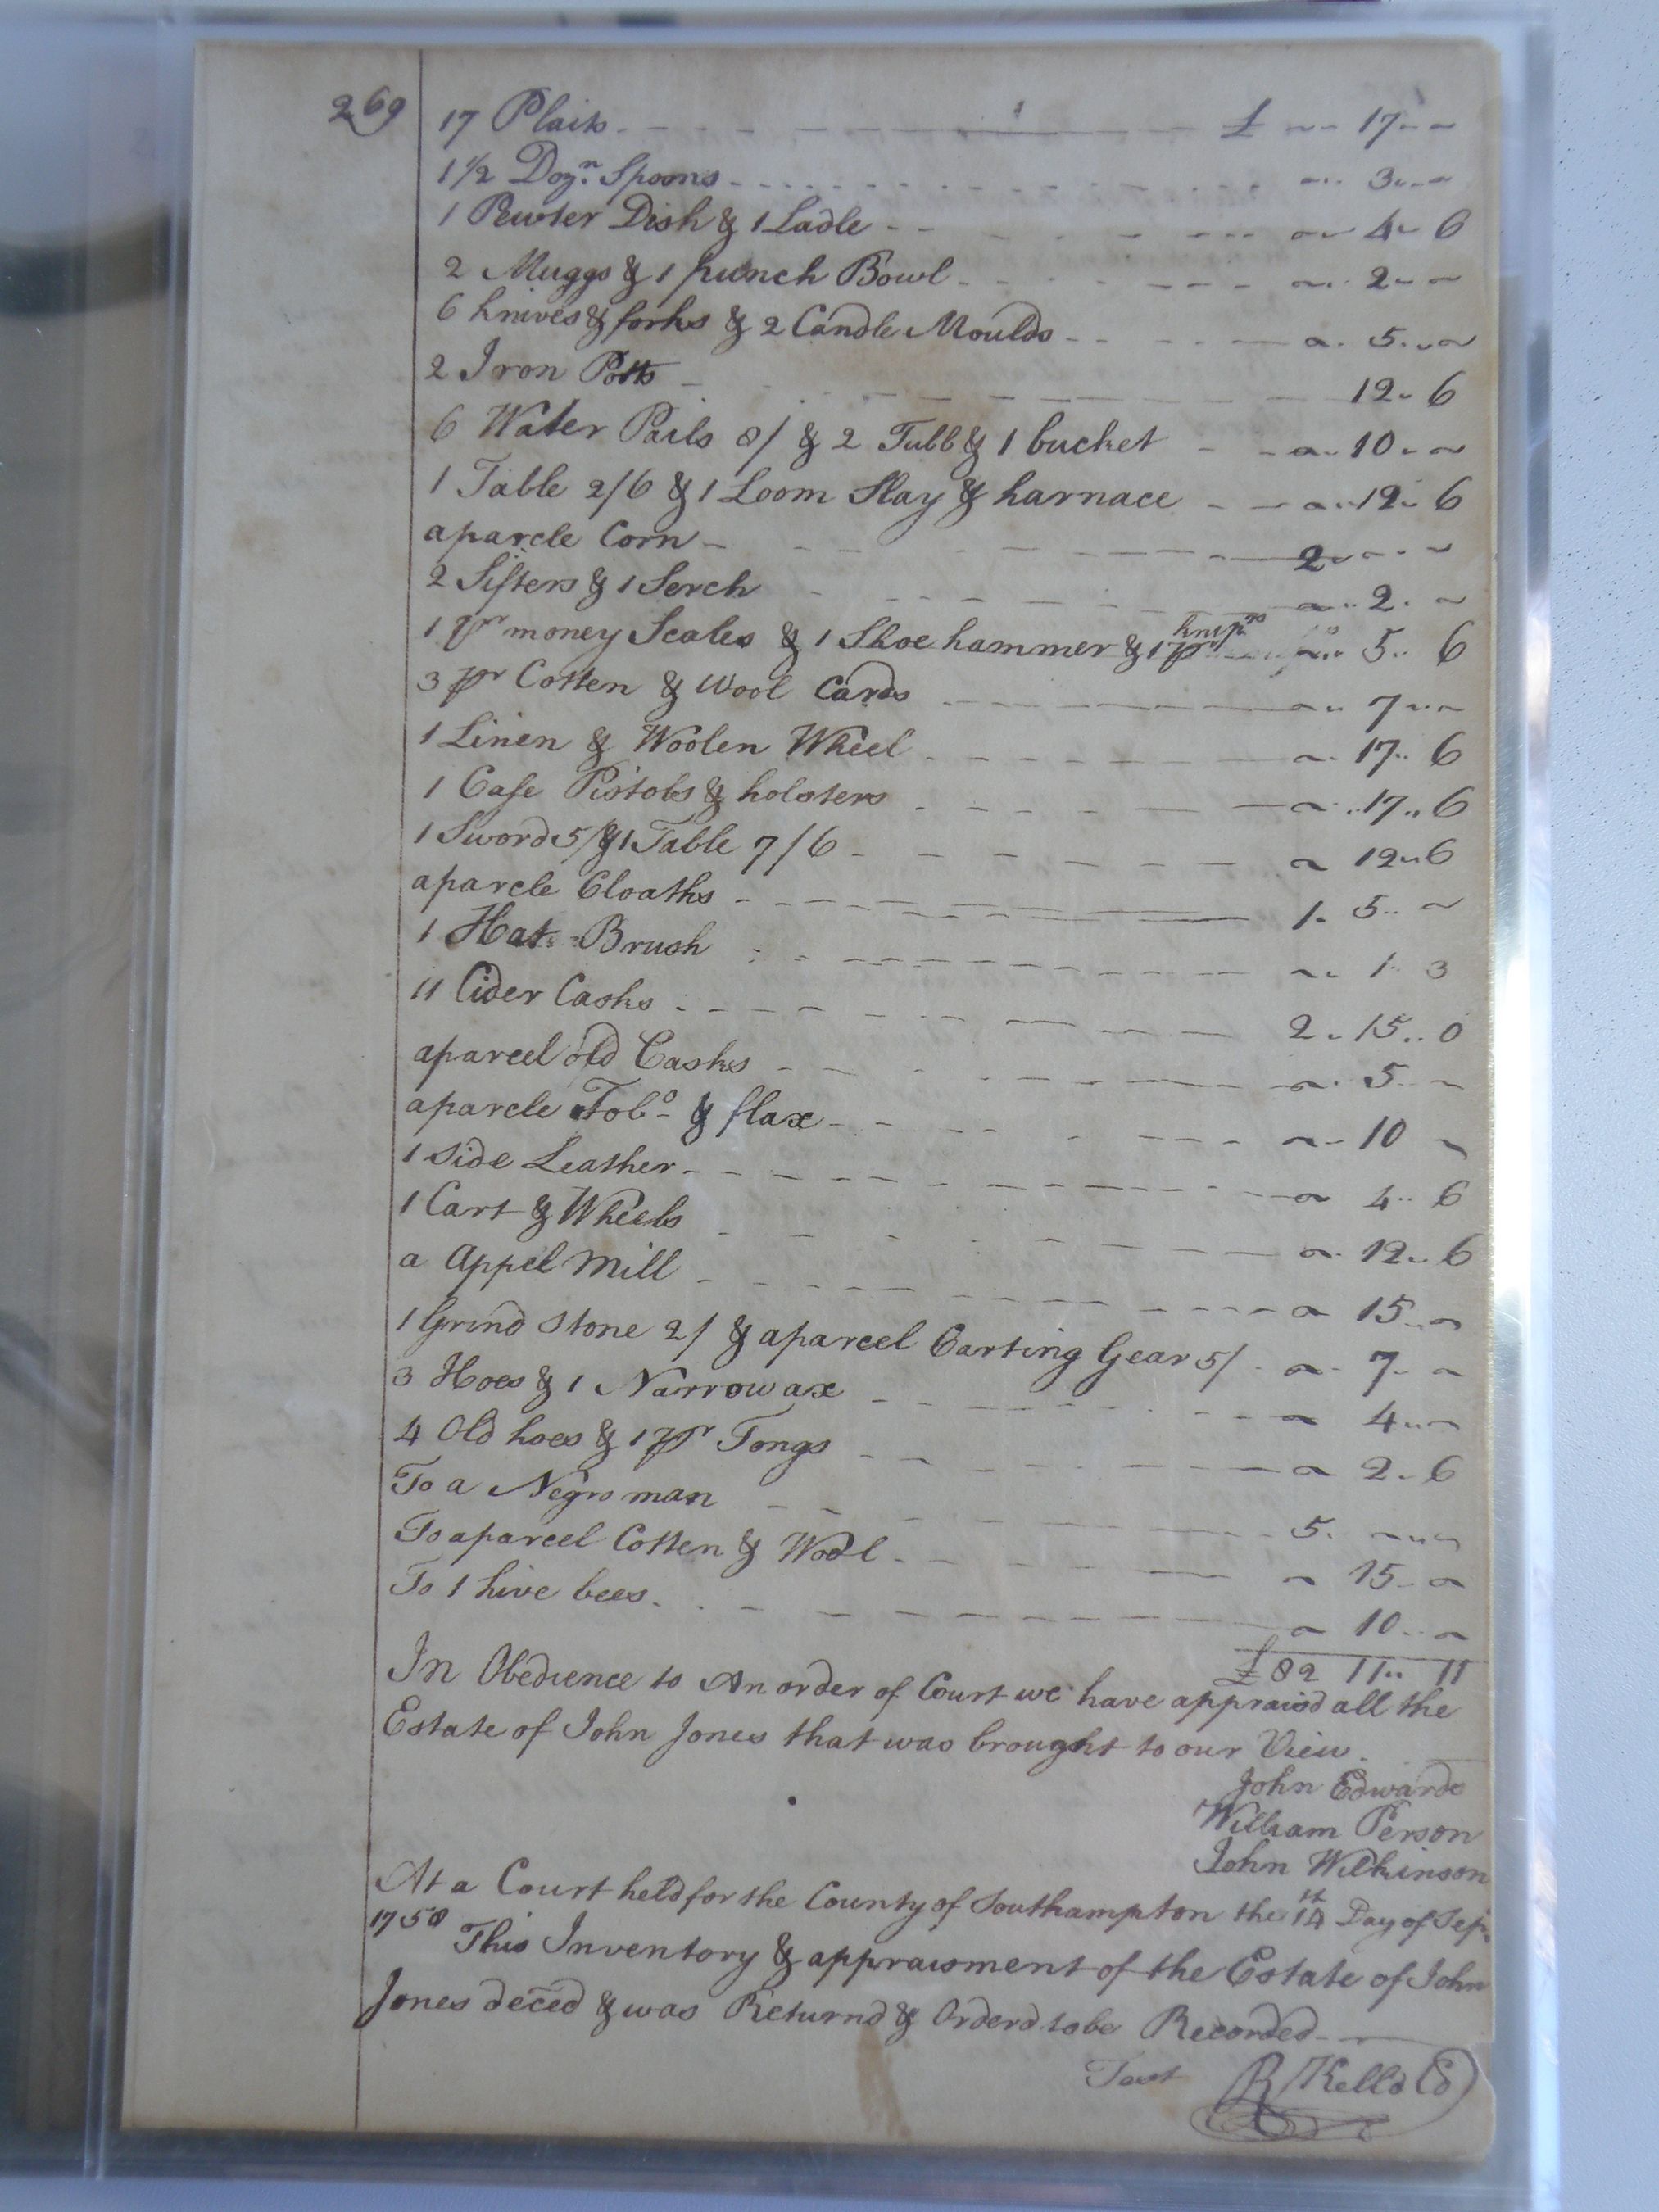 269
17 Plaits £ 17
1 1/2 Dozn. Spoons 3
1 Pewter Dish & 1 Ladle 4 6
2 Muggs & 1 punch Bowl 2
6 knives & forks & 2 Candle Moulds 5
2 Iron Potts 12 6
6 Water Pails 8/ & 2 Tubb & 1 bucket 10
1 Table 2/6 & 1 Loom Slay & harnace 12 6
aparcle Corn 2
2 Sifters & 1 Serch 2
1 pr money Scales & 1 Shoe hammer & 1 pr 5 6
3 pr Cotten & Wool Cards 7
1 Linen & Woolen Wheel 17 6
1 Case Pistols & holsters 17 6
1 Sword 5/ & 1 Table 7/6 12 6
aparcle Cloaths 1 5
1 Hat Brush 1 3
11 Cider Casks 2 15 0
aparcel old Casks 5
aparcle Tobo & flax 10
1 Side Leather 4 6
1 Cart & Wheels 12 6
a Appel Mill 15
1 Grind Stone 2/ & aparcel Carting Gear 5/ 7
3 Hoes & 1 Narrow ax 4
4 Old hoes & 1 pr Tongs 2 6
To a Negro man 5
To aparcel Cotten & Wool 15
To 1 hive bees 10
£82 11 11
In Obedience to An order of Court we have appraisd all the
Estate of John Jones that was brought to our View
John Edwards
William Person
John Wilkinson
At a Court held for the County of Southampton the 14th Day of Sepr.
1758
This Inventory & appraisment of the Estate of John
Jones deced & was Returnd & Orderd to be Recorded
Test R Kello Cl